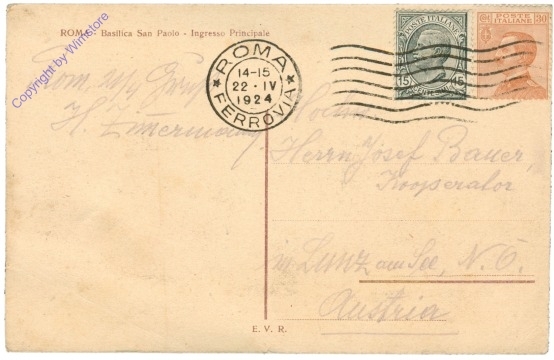 ROMA - Basilica San Paolo - Ingresso Principale
Copyright by Winstore
ROMA
14-15
22 · IV
1924
FERROVIA
POSTE ITALIANE
15 15
POSTE ITALIANE
30
Herrn Josef Bauer,
Kooperator
in Lunz am See, N. Ö.
Austria
E. V. R.